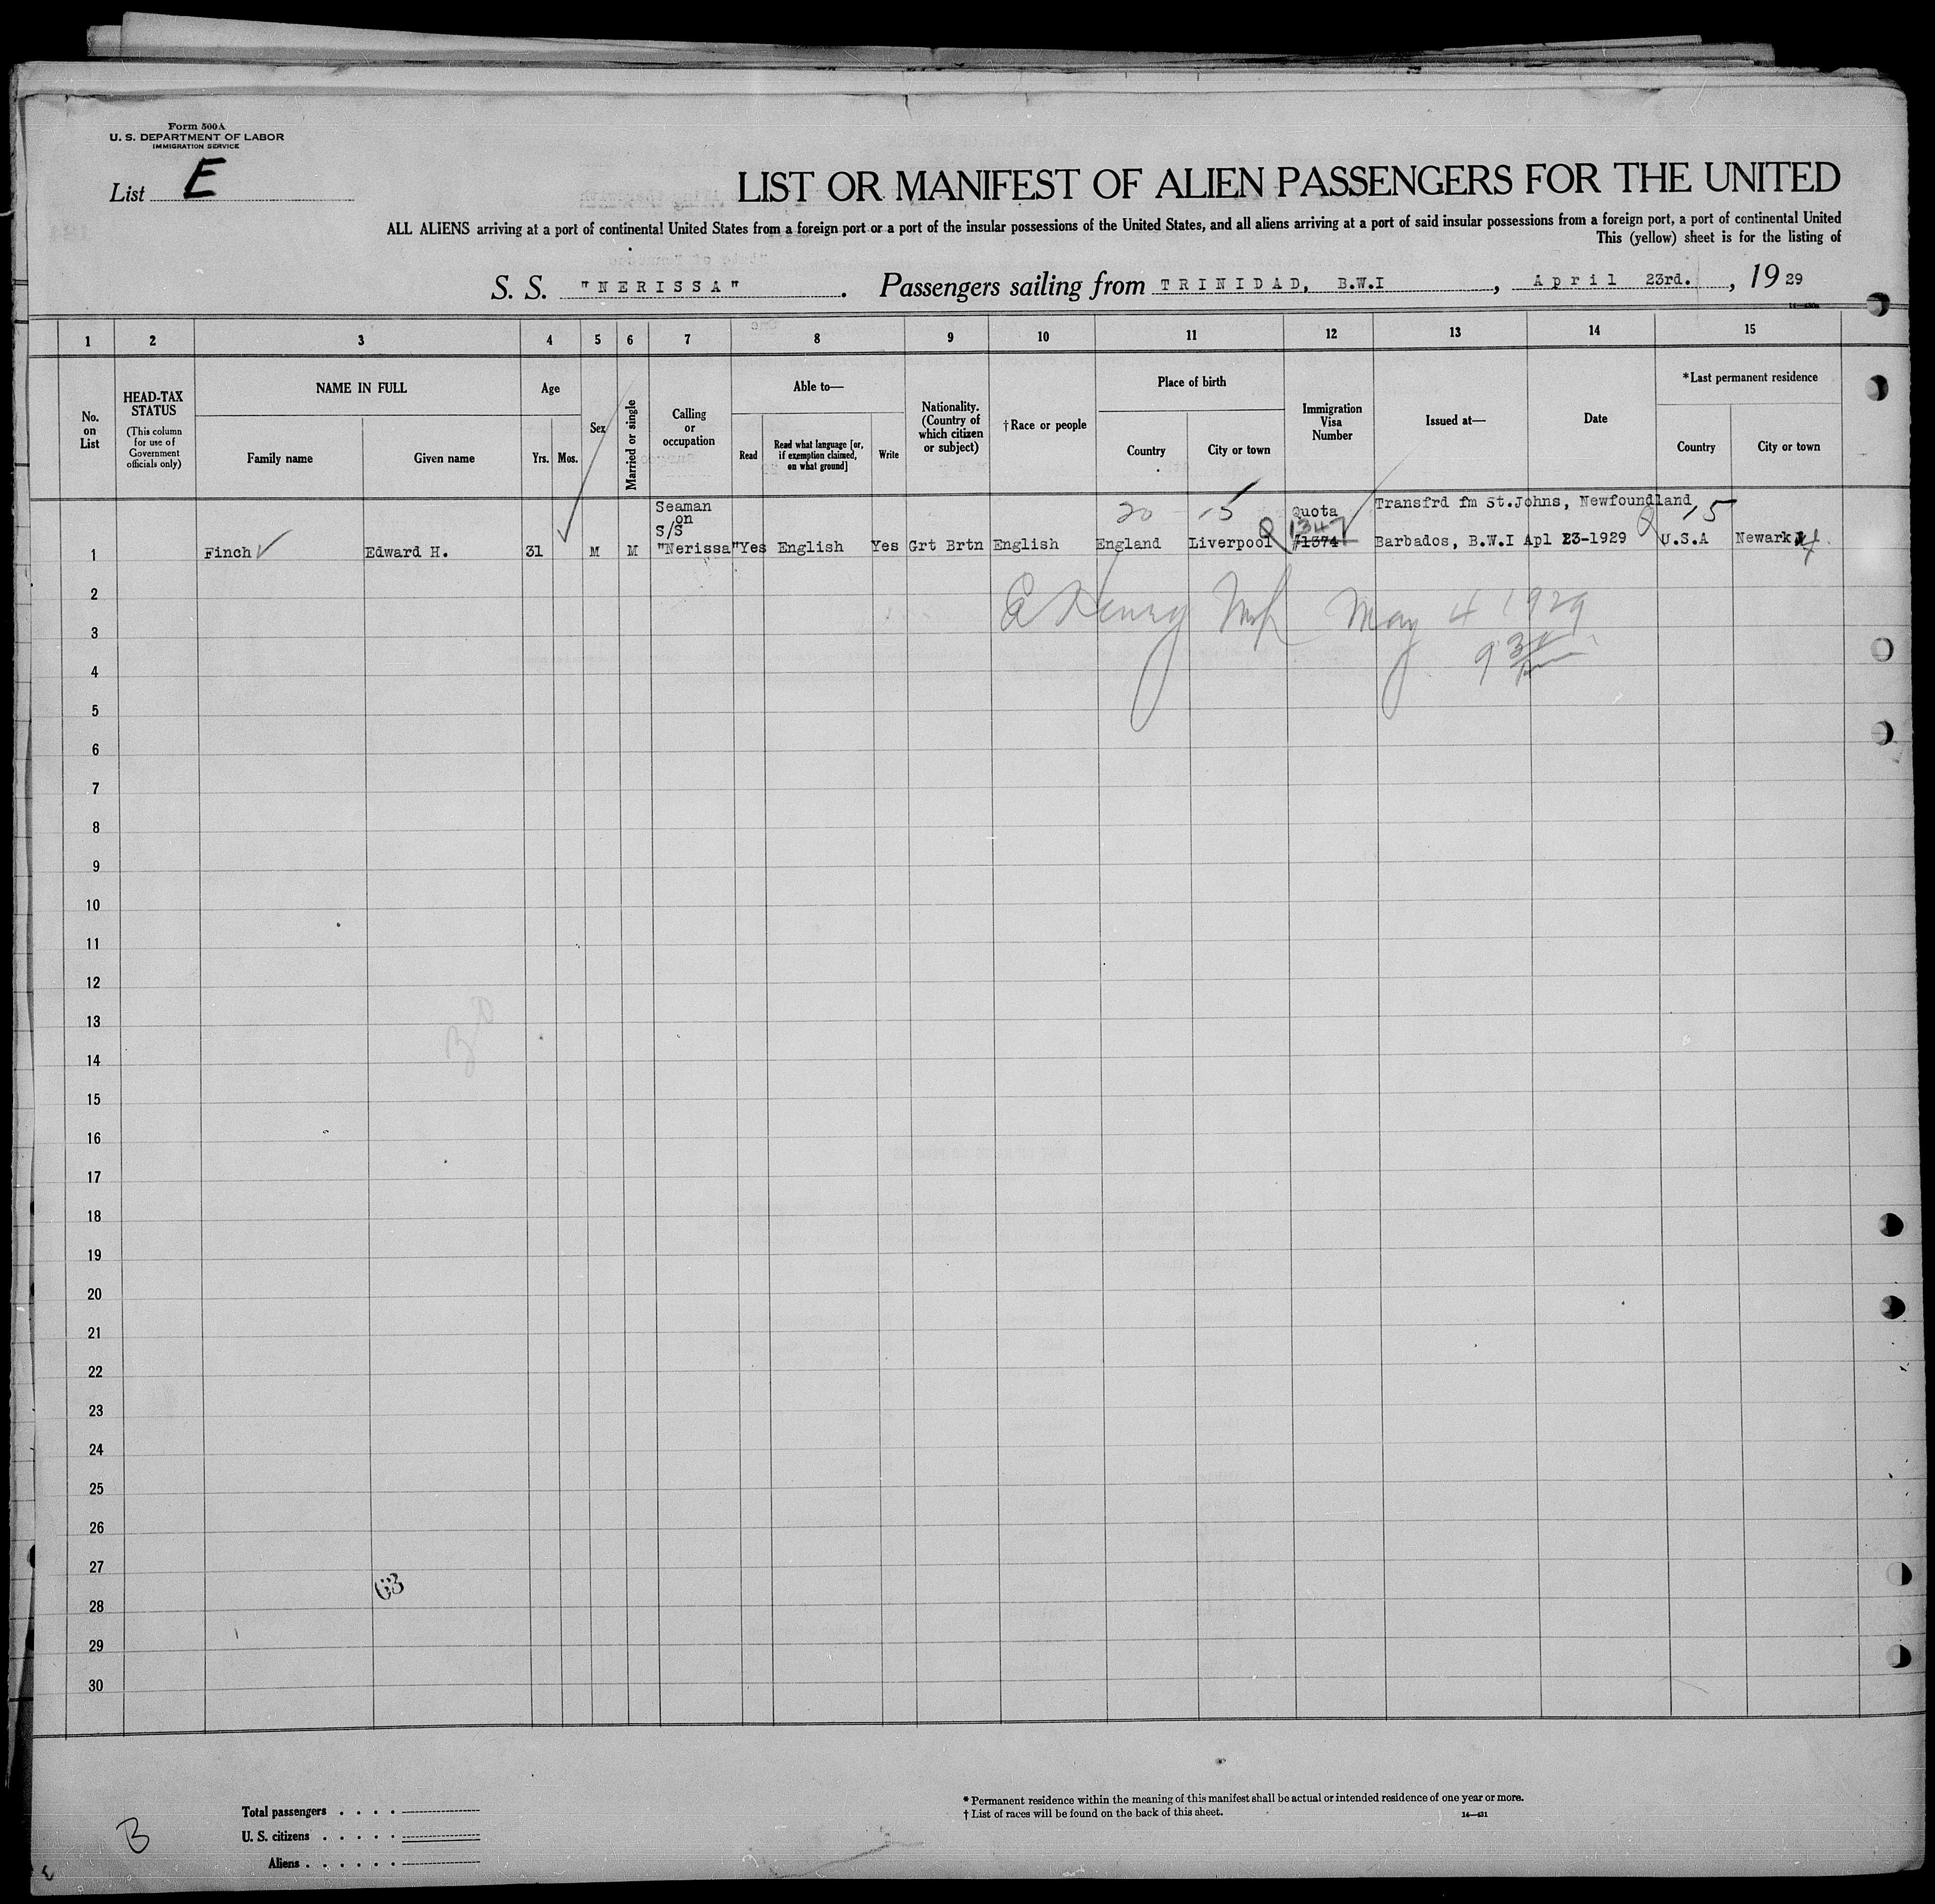 Form 500A
U. S. DEPARTMENT OF LABOR
IMMIGRATION SERVICE
List E
LIST OR MANIFEST OF ALIEN PASSENGERS FOR THE UNITED
ALL ALIENS arriving at a port of continental United States from a foreign port or a port of the insular possessions of the United States, and all aliens arriving at a port of said insular possessions from a foreign port, a port of continental United
This (yellow) sheet is for the listing of
S. S. "NERISSA". Passengers sailing from TRINIDAD, B.W.I, April 23rd., 1929
1 2 3 4 5 6 7 8 9 10 11 12 13 14 15
No. on List
HEAD-TAX STATUS
(This column for use of Government officials only)
NAME IN FULL
Family name
Given name
Age
Yrs.
Mos.
Sex
Married or single
Calling or occupation
Able to—
Read
Read what language [or, if exemption claimed, on what ground]
Write
Nationality. (Country of which citizen or subject)
†Race or people
Place of birth
Country
City or town
Immigration Visa Number
Issued at—
Date
*Last permanent residence
Country
City or town
20 15 15
1 Finch Edward H. 31 M M Seaman on S/S "Nerissa" Yes English Yes Grt Brtn English England Liverpool Quota 1347 #1374 Transfrd fm St.Johns, Newfoundland, Barbados, B.W.I Apl 23-1929 U.S.A Newark
May 4 1929
2
3
4
5
6
7
8
9
10
11
12
13
14
15
16
17
18
19
20
21
22
23
24
25
26
27
63
28
29
30
Total passengers
U. S. citizens
Aliens
B
* Permanent residence within the meaning of this manifest shall be actual or intended residence of one year or more.
† List of races will be found on the back of this sheet.
14—431